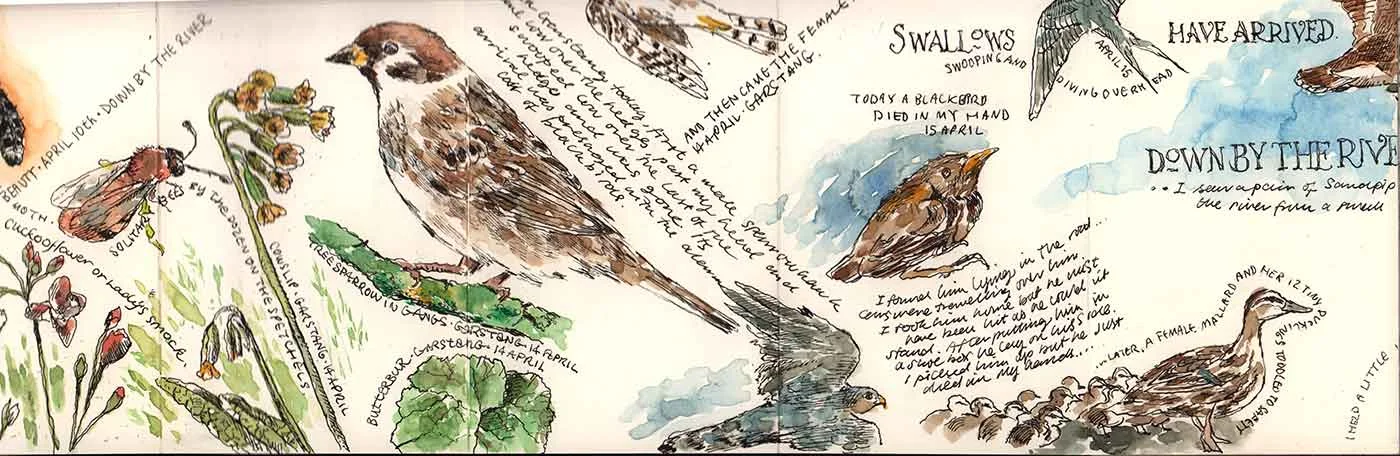 BEAUTY · APRIL 10th · DOWN BY THE RIVER
MOTH ·
SOLITARY BEES BY THE DOZEN ON THE SPETCHELS
Cuckooflower or Lady's smock
COWSLIP · GARSTANG · 14 APRIL
TREE SPARROW IN GANGS · GARSTANG · 14 APRIL
BUTTERBUR · GARSTANG ·
14 APRIL
Garstang today. First a male sparrowhawk
low over the hedge, past my head and
swooped low over the last of the
hedge and was gone. Its
arrival was preempted with the alarm
call of blackbirds
AND THEN CAME THE FEMALE.
14 · APRIL · GARSTANG.
SWALLOWS
SWOOPING AND
DIVING OVERHEAD
APRIL 15
HAVE ARRIVED.
TODAY A BLACKBIRD
DIED IN MY HAND
15 APRIL
I found him lying in the road...
cars were travelling over him.
I took him home but he must
have been hit as he could not
stand. After putting him in
a shoe box he lay on his side.
I picked him up but he just
died in my hands....
DOWN BY THE RIVE
.. I saw a pair of Sandpip
the river from a small
...LATER, A FEMALE MALLARD AND HER 12 TINY
DUCKLINGS TODDLED TO SAFETY
I HELD A LITTLE